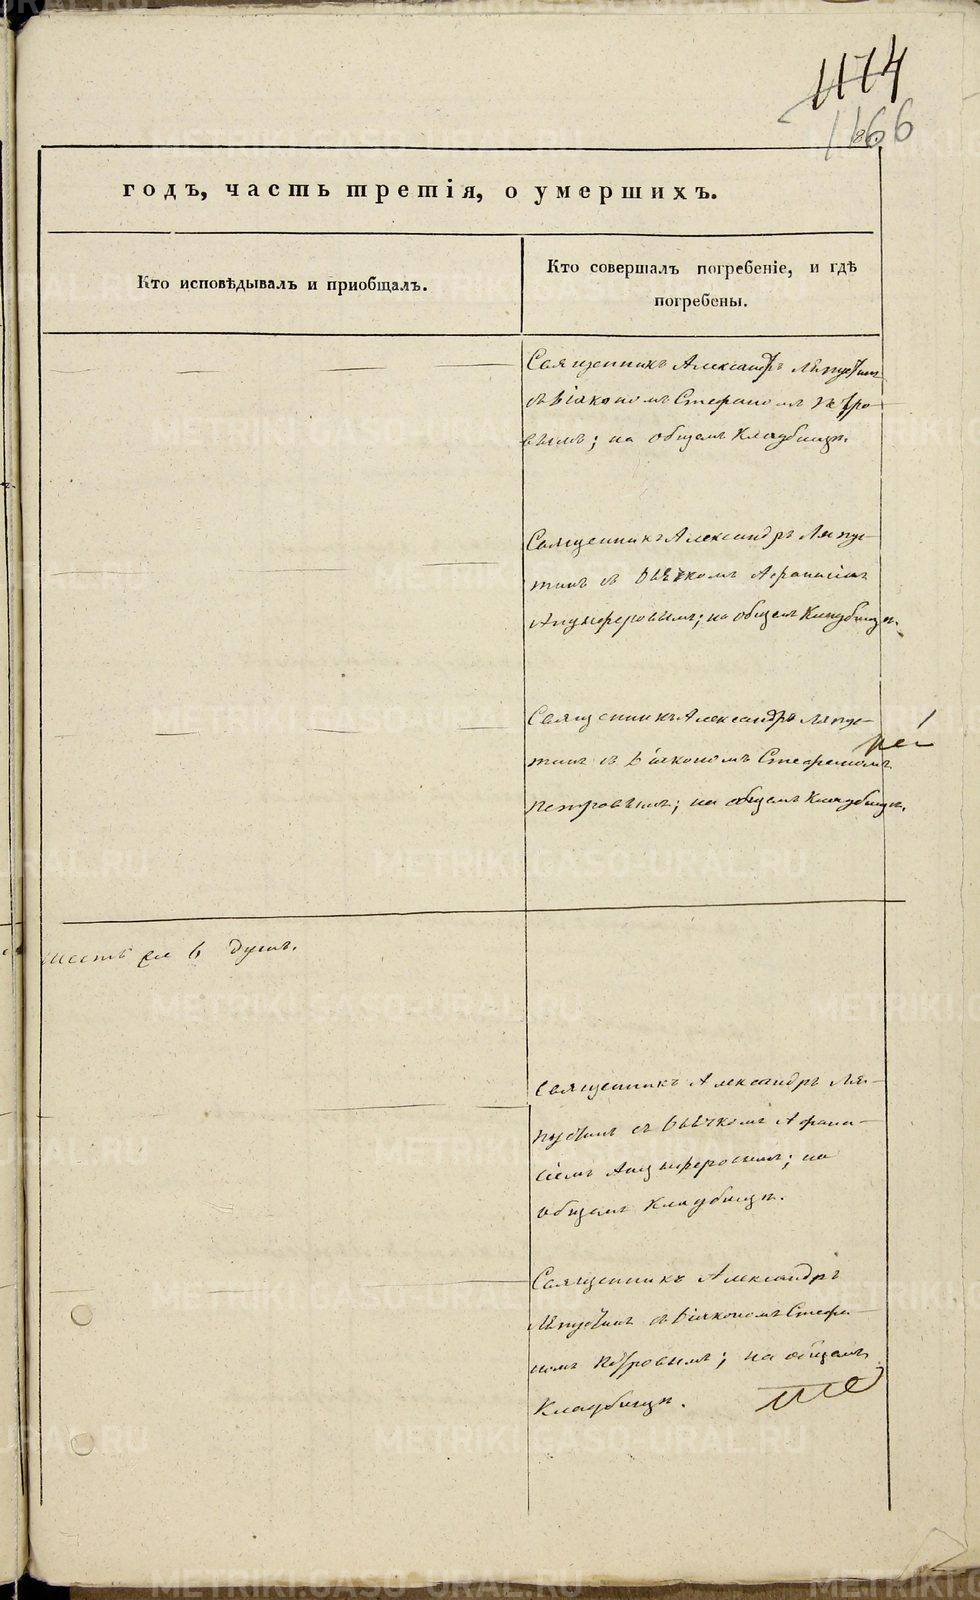 1174
1166
годъ, часть третія, о умершихъ.
Кто исповѣдывалъ и приобщалъ.
Кто совершалъ погребеніе, и гдѣ
погребены.
Священникъ Александръ Ляпустинъ
съ Діакономъ Стефаномъ Петро-
вымъ; на общемъ Кладбищѣ.
Священникъ Александръ Ляпус-
тинъ съ Дьячкомъ Афанасіемъ
Анциферовымъ; на общемъ Кладбищѣ.
Священникъ Александръ Ляпус-
тинъ съ Діакономъ Стефаномъ
Петровымъ; на общемъ Кладбищѣ.
шесть 6 душъ.
Священникъ Александръ Ля-
пустинъ съ Дьячкомъ Афана-
сіемъ Анциферовымъ; на
общемъ Кладбищѣ.
Священникъ Александръ
Ляпустинъ съ Діакономъ Стефа-
номъ Петровымъ; на общемъ
Кладбищѣ.
METRIKI.GASO-URAL.RU